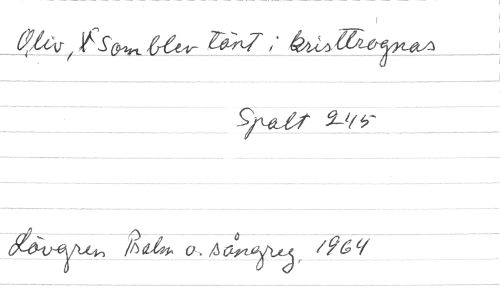 O, liv, som blev tänt i kristtrognas
Spalt 245
Lövgren Psalm o. sångreg. 1964